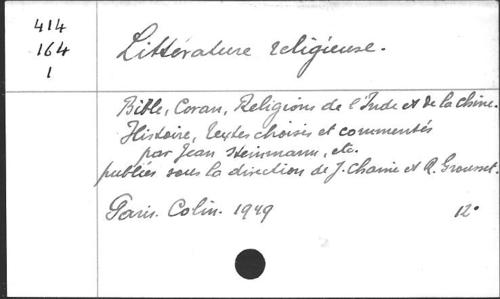 414
164
1
Littérature religieuse.
Bible, Coran, Religions de l'Inde et de la Chine.
Histoire, textes choisis et commentés
par Jean Steinmann, etc.
publiés sous la direction de J. Chaine et R. Grousset.
Paris. Colin. 1949 12°